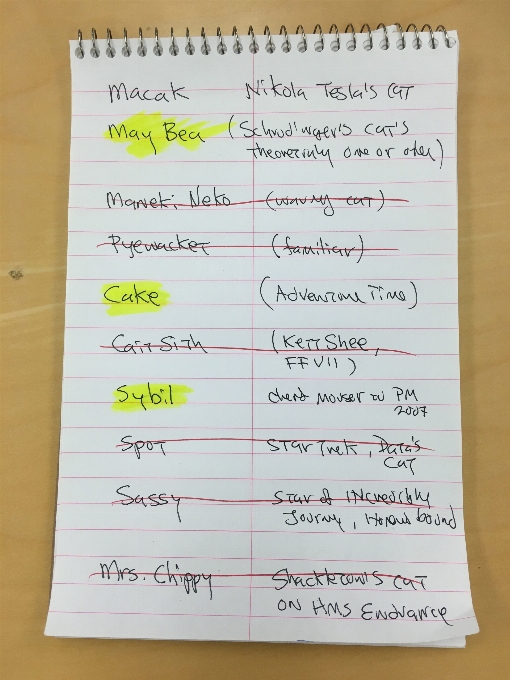 Macak Nikola Tesla's cat
May Bea (Schrodinger's cat's
one or other)
Maneki Neko (waving cat)
Pyewacket (familiar)
Cake (Adventure Time)
Cait Sith (Kett Shee,
FFVII)
Sybil chief mouser to PM
2007
Spot Star Trek, Data's
cat
Sassy Star of Incredibly
Journey, Homeward bound
Mrs. Chippy Shackleton's cat
on HMS Endurance